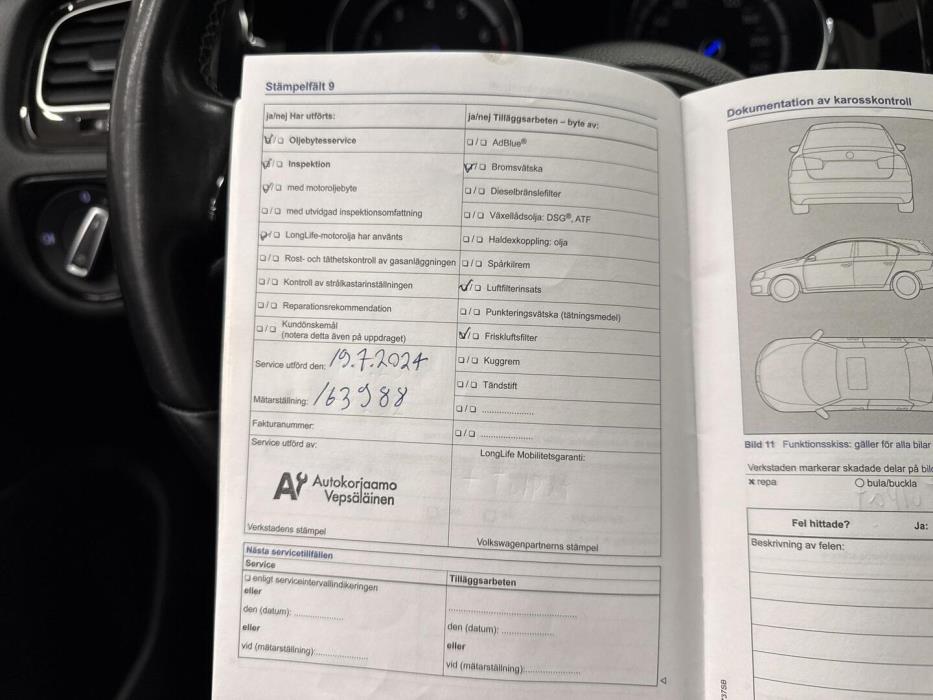 Stämpelfält 9
ja/nej Har utförts:
☑/☐ Oljebytesservice
☑/☐ Inspektion
☑/☐ med motoroljebyte
☐/☐ med utvidgad inspektionsomfattning
☑/☐ LongLife-motorolja har använts
☐/☐ Rost- och täthetskontroll av gasanläggningen
☐/☐ Kontroll av strålkastarinställningen
☐/☐ Reparationsrekommendation
☐/☐ Kundönskemål
(notera detta även på uppdraget)
Service utförd den: 19.7.2024
Mätarställning: 163988
Fakturanummer:
Service utförd av:
Autokorjaamo
Vepsäläinen
Verkstadens stämpel
ja/nej Tilläggsarbeten – byte av:
☐/☐ AdBlue®
☑/☐ Bromsvätska
☐/☐ Dieselbränslefilter
☐/☐ Växellådsolja: DSG®, ATF
☐/☐ Haldexkoppling: olja
☐/☐ Spårkilrem
☑/☐ Luftfilterinsats
☐/☐ Punkteringsvätska (tätningsmedel)
☑/☐ Friskluftsfilter
☐/☐ Kuggrem
☐/☐ Tändstift
☐/☐ ....................
☐/☐ ....................
LongLife Mobilitetsgaranti:
Volkswagenpartnerns stämpel
Nästa servicetillfällen
Service
☐ enligt serviceintervallindikeringen
eller
den (datum): ..................
eller
vid (mätarställning): ..................
Tilläggsarbeten
..............................................
den (datum): ..................
eller
vid (mätarställning): ..................
Dokumentation av karosskontroll
Bild 11 Funktionsskiss: gäller för alla bilar
Verkstaden markerar skadade delar på
x repa
○ bula/buckla
Fel hittade?
Ja:
Beskrivning av felen: